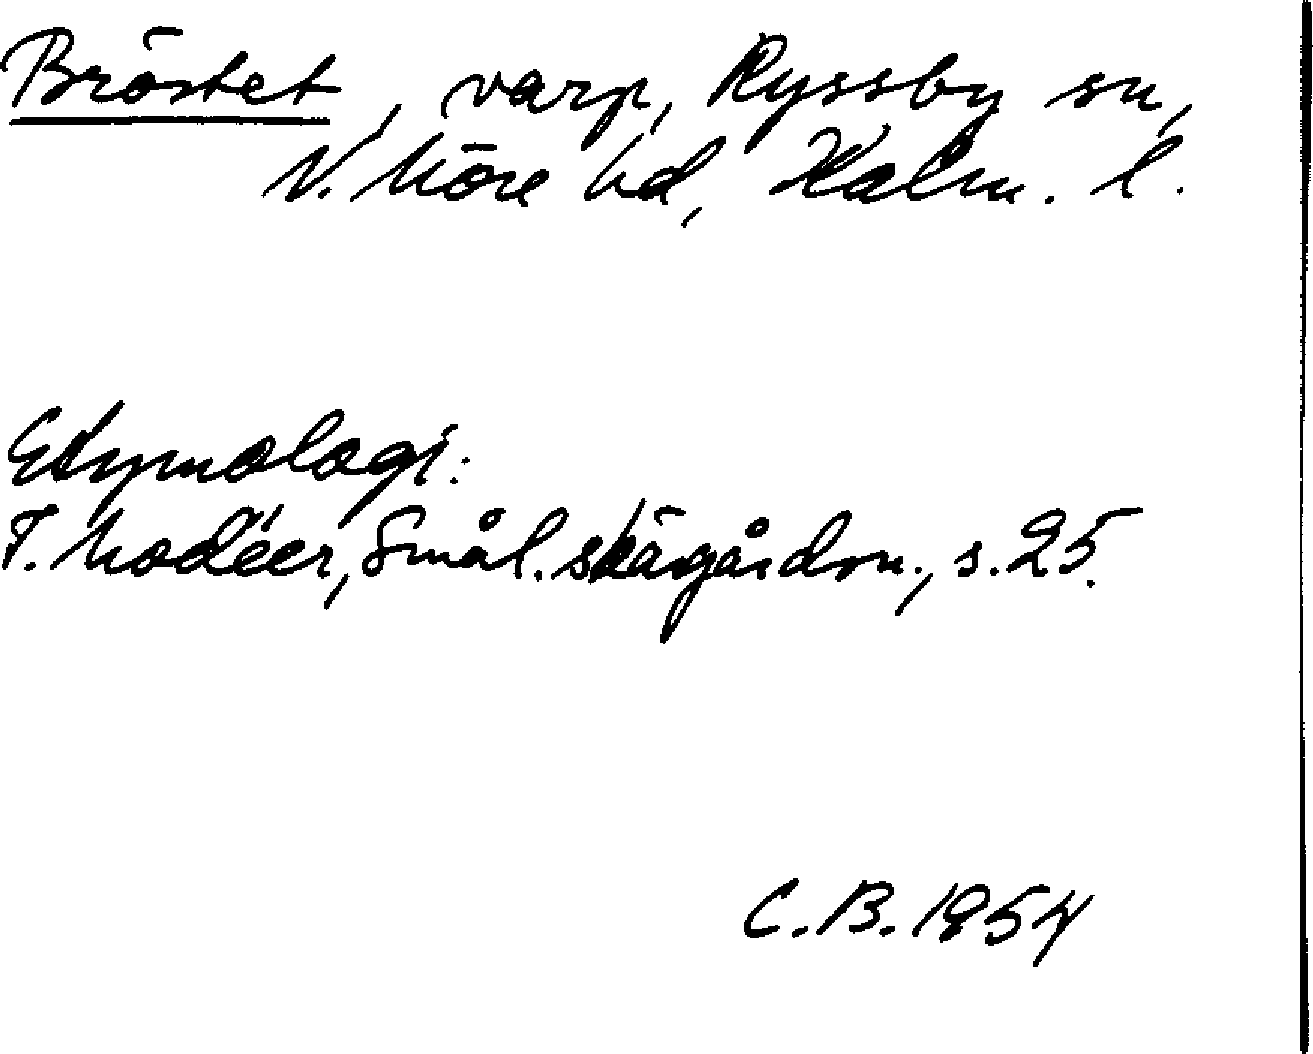 Bröstet, varp, Ryssby sn,
N. Möre hd, Kalm. l.
Etymologi:
I. Modéer, Smål. skärgårdsn., s. 25.
C.B. 1954